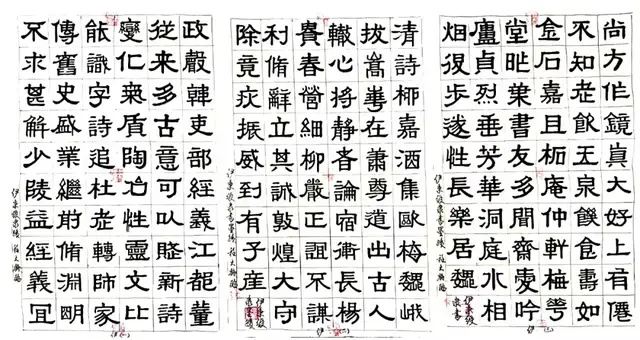 尚方作鏡真大好上有僊
不知老飲玉泉飢食棗如
金石嘉且柘庵仲軒梅萼
堂葉書友多聞齋吟
廬貞烈垂芳華洞庭水相
畑復步遂性長樂居魏
清詩柳嘉酒集歐梅魏峨
拔嵩華在蕭尊道出古人
轍心將靜吝論宿衛長楊
貴春營細柳嚴正誼不謀
利脩辭立其誠敦煌大守
除竟疢振威到有子產
政韓吏部經義江都董
從来多古意可以賦新詩
變化氣質陶冶性靈文比
能識字詩追杜老轉師家
傳舊史盛業繼前脩淵明
不求甚解少陵益經義宜